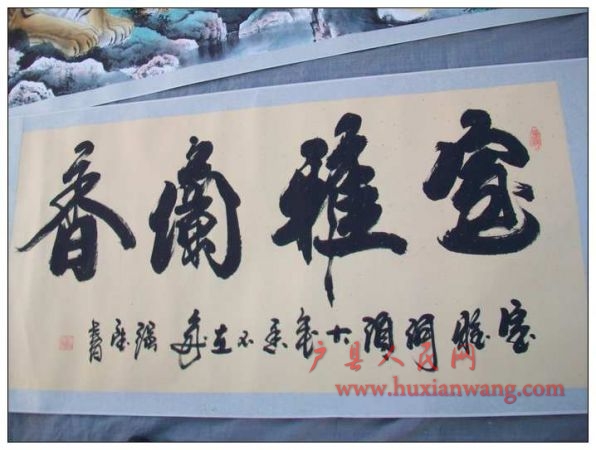 室雅蘭香
室雅何須大花香不在多 书
户县人民网
www.huxianwang.com